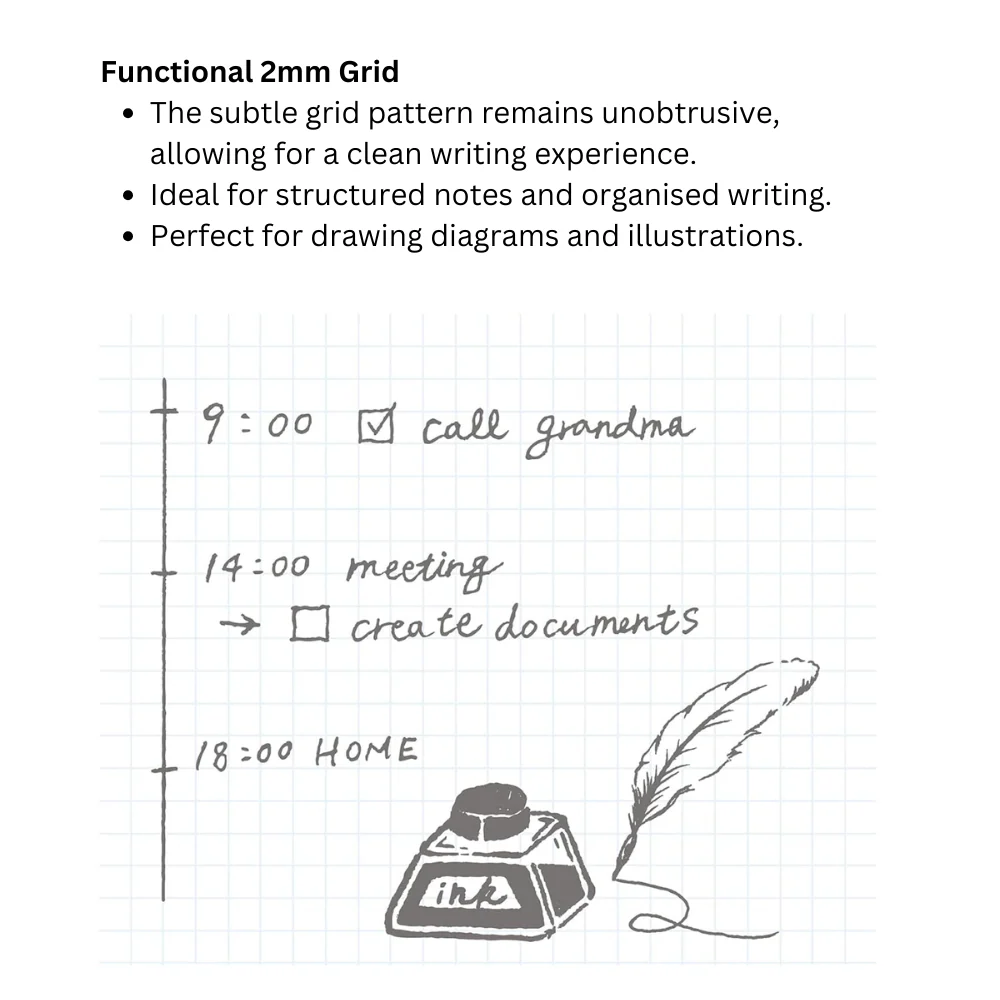 Functional 2mm Grid
• The subtle grid pattern remains unobtrusive,
allowing for a clean writing experience.
• Ideal for structured notes and organised writing.
• Perfect for drawing diagrams and illustrations.
9:00 ☑ call grandma
14:00 meeting
→ ☐ create documents
18:00 HOME
ink